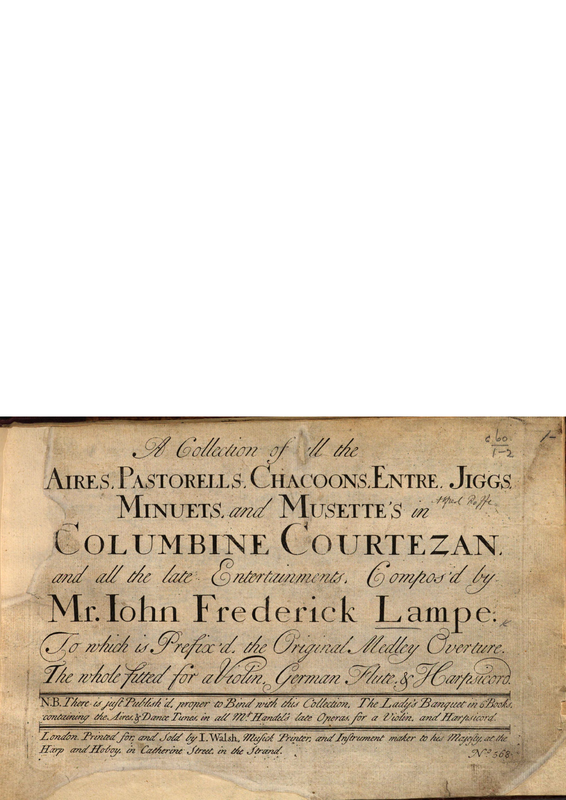 A Collection of all the
c.60.
1-2
1-
AIRES, PASTORELLS, CHACOONS, ENTRE, JIGGS,
MINUETS, and MUSETTE'S in
COLUMBINE COURTEZAN,
and all the late Entertainments, Compos'd by
Mr. Iohn Frederick Lampe.
To which is Prefix'd, the Original Medley Overture.
The whole fitted for a Violin, German Flute, & Harpsicord.
N.B. There is just Publish'd, proper to Bind with this Collection, The Lady's Banquet in 6 Books,
containing the Aires, & Dance Tunes in all Mr. Handel's late Operas for a Violin, and Harpsicord.
London. Printed for, and Sold by I. Walsh, Musick Printer, and Instrument maker to his Majesty, at the
Harp and Hoboy, in Catherine Street, in the Strand.
No. 568.